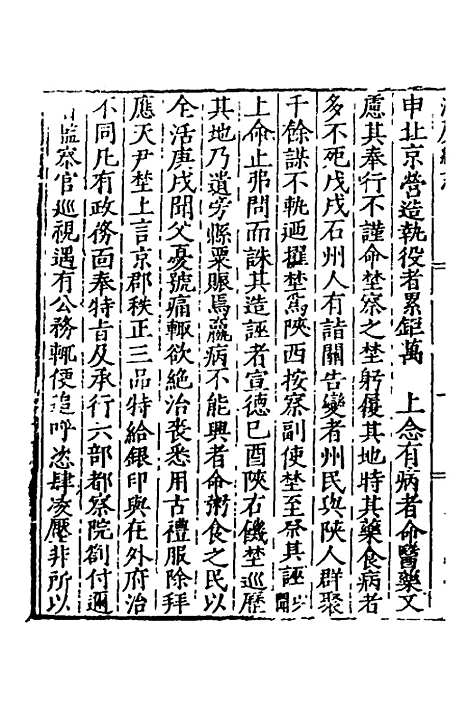 申北京營造執役者累鉅萬　上念有病者命醫藥又
慮其奉行不謹命埜察之埜躬優其地時其藥食病者
多不死戊戌石州人有詣闕告變者州民與陝人群聚
千餘謀不軌廼擢埜爲陝西按察副使埜至祭其誣以聞
上命止弗問而誅其造誣者宣德巳酉陝右饑埜巡歷
其地乃遺旁縣粟賑焉羸病不能興者命粥食之民以
全活庚戌聞父憂號痛輒欲絶治喪悉用古禮服除拜
應天尹埜上言京郡秩正三品特給銀印與在外府治
不同凡有政務面奉特旨及承行六部都察院劄付邇
監察官巡視遇有公務輒便追呼恣肆凌壓非所以